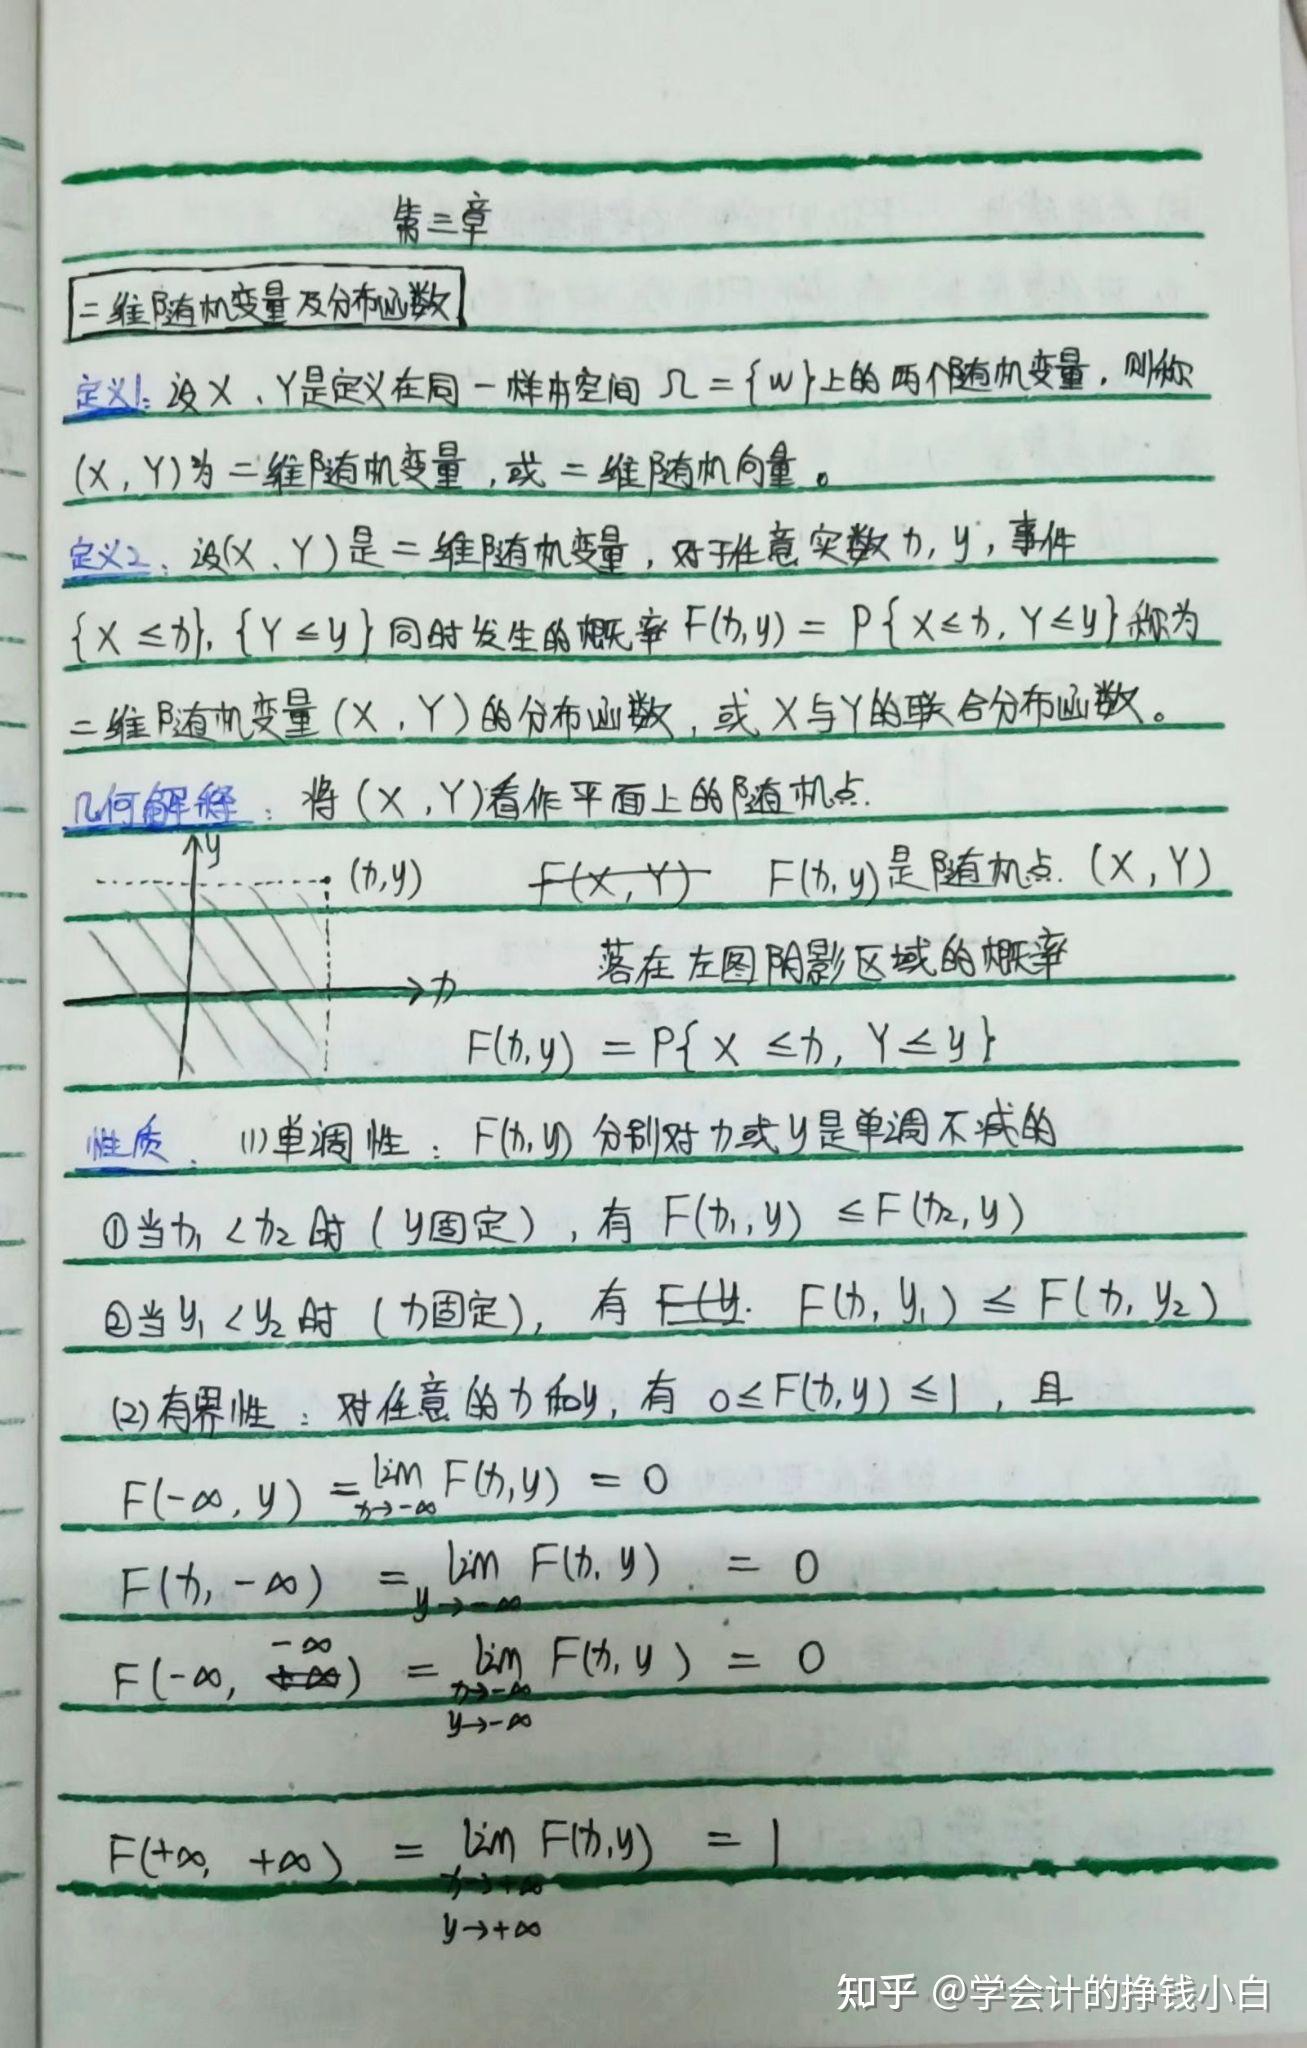 第三章
二维随机变量及分布函数
定义1：设X、Y是定义在同一样本空间 Ω={w}上的两个随机变量，则称
(X，Y)为二维随机变量，或二维随机向量。
定义2：设(X、Y)是二维随机变量，对于任意实数x，y，事件
{X≤x}，{Y≤y}同时发生的概率F(x,y)=P{X≤x，Y≤y}称为
二维随机变量(X，Y)的分布函数，或X与Y的联合分布函数。
几何解释：将(X，Y)看作平面上的随机点.
y
(x,y) F(X,Y) F(x,y)是随机点.(X，Y)
落在左图阴影区域的概率
x
F(x,y)=P{X≤x，Y≤y}
性质：(1)单调性：F(x,y)分别对x或y是单调不减的
①当x₁<x₂时(y固定)，有F(x₁,y)≤F(x₂,y)
②当y₁<y₂时(x固定)，有F(y. F(x,y₁)≤F(x,y₂)
(2)有界性：对任意的x和y，有 0≤F(x,y)≤1，且
F(-∞,y) = lim F(x,y) = 0
x→-∞
F(x,-∞) = lim F(x,y) = 0
y→-∞
-∞
F(-∞,+∞) = lim F(x,y) = 0
x→-∞
y→-∞
F(+∞,+∞) = lim F(x,y) = 1
x→+∞
y→+∞
知乎 @学会计的挣钱小白